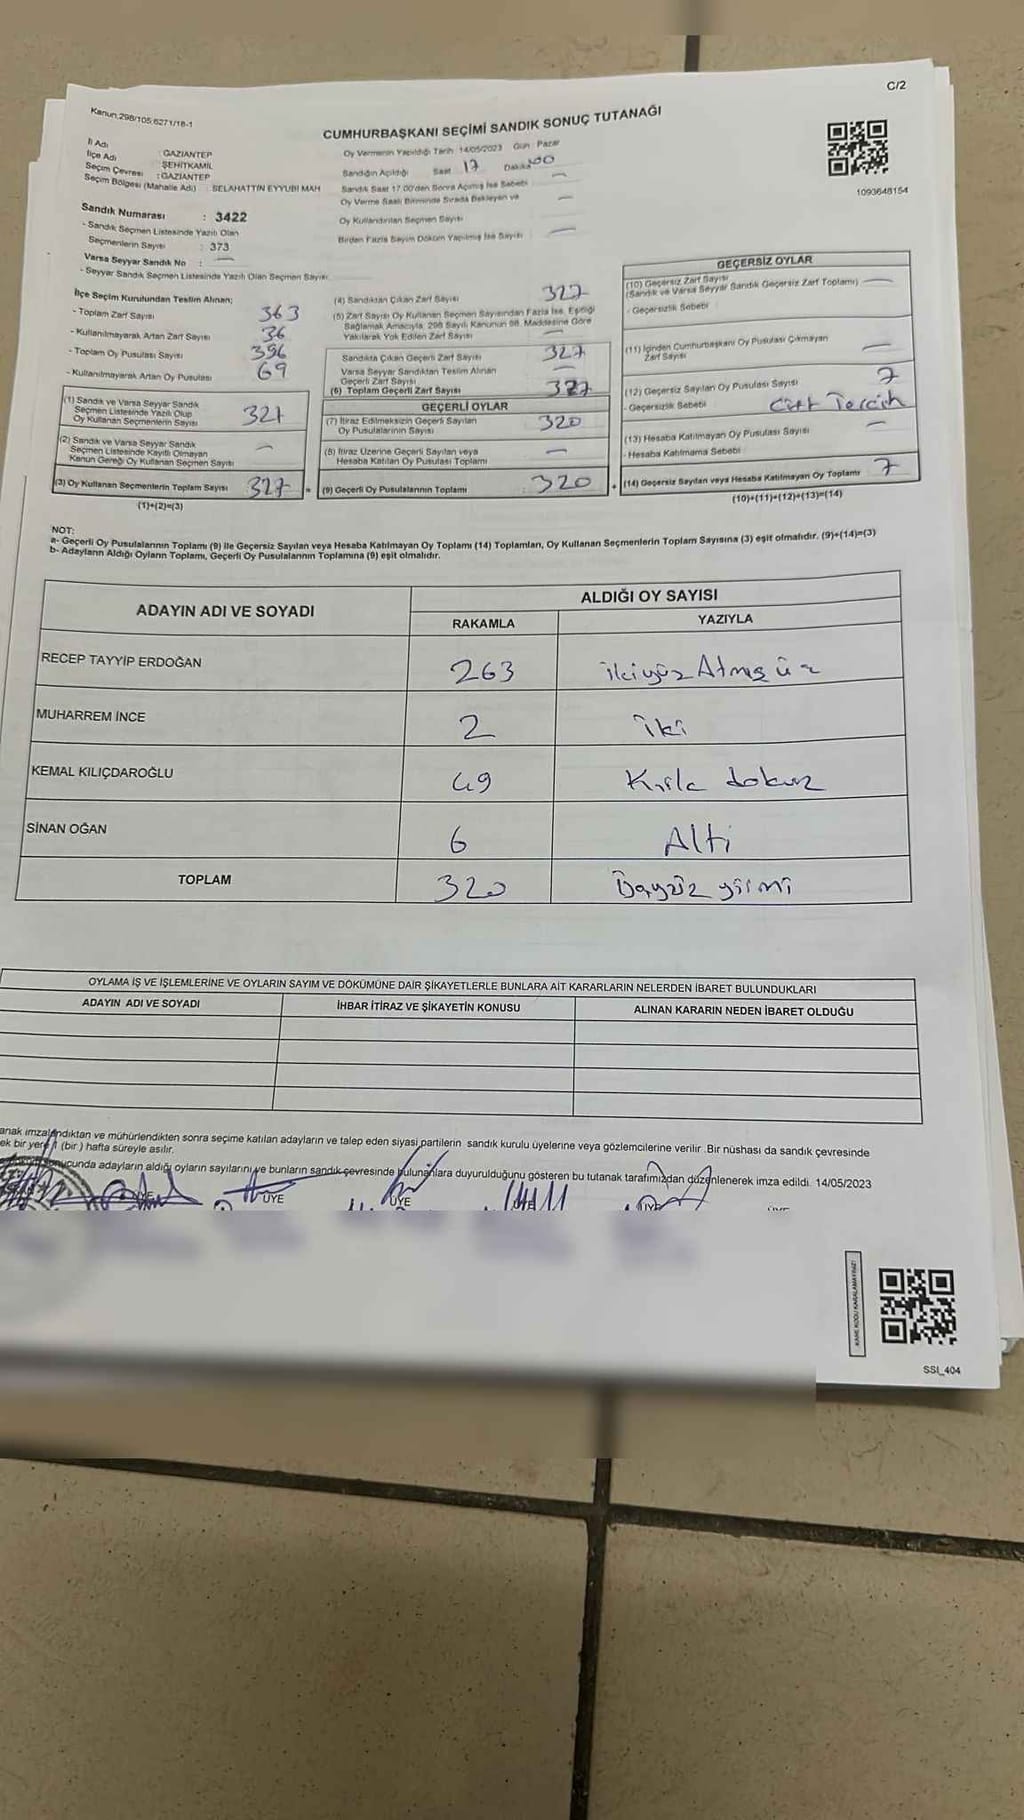 C/2
Kanun.298/105;6271/18-1
CUMHURBAŞKANI SEÇİMİ SANDIK SONUÇ TUTANAĞI
İl Adı : GAZİANTEP
İlçe Adı : ŞEHİTKAMİL
Seçim Çevresi : GAZİANTEP
Seçim Bölgesi (Mahalle Adı) : SELAHATTİN EYYUBİ MAH
Oy Vermenin Yapıldığı Tarih :14/05/2023 Gün : Pazar
Sandığın Açıldığı Saat 17 Dakika 00
Sandık Saat 17.00'den Sonra Açılmış İse Sebebi —
Oy Verme Saati Bitiminde Sırada Bekleyen ve
Oy Kullandırılan Seçmen Sayısı —
Birden Fazla Sayım Döküm Yapılmış İse Sayısı —
1093648154
Sandık Numarası : 3422
- Sandık Seçmen Listesinde Yazılı Olan
Seçmenlerin Sayısı : 373
Varsa Seyyar Sandık No : —
- Seyyar Sandık Seçmen Listesinde Yazılı Olan Seçmen Sayısı
İlçe Seçim Kurulundan Teslim Alınan;
- Toplam Zarf Sayısı 363
- Kullanılmayarak Artan Zarf Sayısı 36
- Toplam Oy Pusulası Sayısı 396
- Kullanılmayarak Artan Oy Pusulası 69
(1) Sandık ve Varsa Seyyar Sandık
Seçmen Listesinde Yazılı Olup
Oy Kullanan Seçmenlerin Sayısı 327
(2) Sandık ve Varsa Seyyar Sandık
Seçmen Listesinde Kayıtlı Olmayan
Kanun Gereği Oy Kullanan Seçmen Sayısı —
(3) Oy Kullanan Seçmenlerin Toplam Sayısı 327 =
(1)+(2)=(3)
(4) Sandıktan Çıkan Zarf Sayısı 327
(5) Zarf Sayısı Oy Kullanan Seçmen Sayısından Fazla İse, Eşitliği
Sağlamak Amacıyla, 298 Sayılı Kanunun 98. Maddesine Göre
Yakılarak Yok Edilen Zarf Sayısı —
Sandıkta Çıkan Geçerli Zarf Sayısı 327
Varsa Seyyar Sandıktan Teslim Alınan
Geçerli Zarf Sayısı —
(6) Toplam Geçerli Zarf Sayısı 327
GEÇERLİ OYLAR
(7) İtiraz Edilmeksizin Geçerli Sayılan
Oy Pusulalarının Sayısı 320
(8) İtiraz Üzerine Geçerli Sayılan veya
Hesaba Katılan Oy Pusulası Toplamı —
(9) Geçerli Oy Pusulalarının Toplamı 320 +
GEÇERSİZ OYLAR
(10) Geçersiz Zarf Sayısı
(Sandık ve Varsa Seyyar Sandık Geçersiz Zarf Toplamı) —
- Geçersizlik Sebebi
(11) İçinden Cumhurbaşkanı Oy Pusulası Çıkmayan
Zarf Sayısı —
(12) Geçersiz Sayılan Oy Pusulası Sayısı 7
- Geçersizlik Sebebi Çift Tercih
(13) Hesaba Katılmayan Oy Pusulası Sayısı —
- Hesaba Katılmama Sebebi
(14) Geçersiz Sayılan veya Hesaba Katılmayan Oy Toplamı 7
(10)+(11)+(12)+(13)=(14)
NOT:
a- Geçerli Oy Pusulalarının Toplamı (9) ile Geçersiz Sayılan veya Hesaba Katılmayan Oy Toplamı (14) Toplamları, Oy Kullanan Seçmenlerin Toplam Sayısına (3) eşit olmalıdır. (9)+(14)=(3)
b- Adayların Aldığı Oyların Toplamı, Geçerli Oy Pusulalarının Toplamına (9) eşit olmalıdır.
ADAYIN ADI VE SOYADI
ALDIĞI OY SAYISI
RAKAMLA YAZIYLA
RECEP TAYYİP ERDOĞAN 263 ikiyüz Atmış üç
MUHARREM İNCE 2 iki
KEMAL KILIÇDAROĞLU 49 Kırk dokuz
SİNAN OĞAN 6 Altı
TOPLAM 320 Üçyüz yirmi
OYLAMA İŞ VE İŞLEMLERİNE VE OYLARIN SAYIM VE DÖKÜMÜNE DAİR ŞİKAYETLERLE BUNLARA AİT KARARLARIN NELERDEN İBARET BULUNDUKLARI
ADAYIN ADI VE SOYADI İHBAR İTİRAZ VE ŞİKAYETİN KONUSU ALINAN KARARIN NEDEN İBARET OLDUĞU
anak imzalandıktan ve mühürlendikten sonra seçime katılan adayların ve talep eden siyasi partilerin sandık kurulu üyelerine veya gözlemcilerine verilir .Bir nüshası da sandık çevresinde
ek bir yere 1 (bir ) hafta süreyle asılır.
sonucunda adayların aldığı oyların sayılarını ve bunların sandık çevresinde bulunanlara duyurulduğunu gösteren bu tutanak tarafımızdan düzenlenerek imza edildi. 14/05/2023
ÜYE ÜYE ÜYE ÜYE ÜYE
KARE KODU KARALAMAYINIZ!
SSI_404